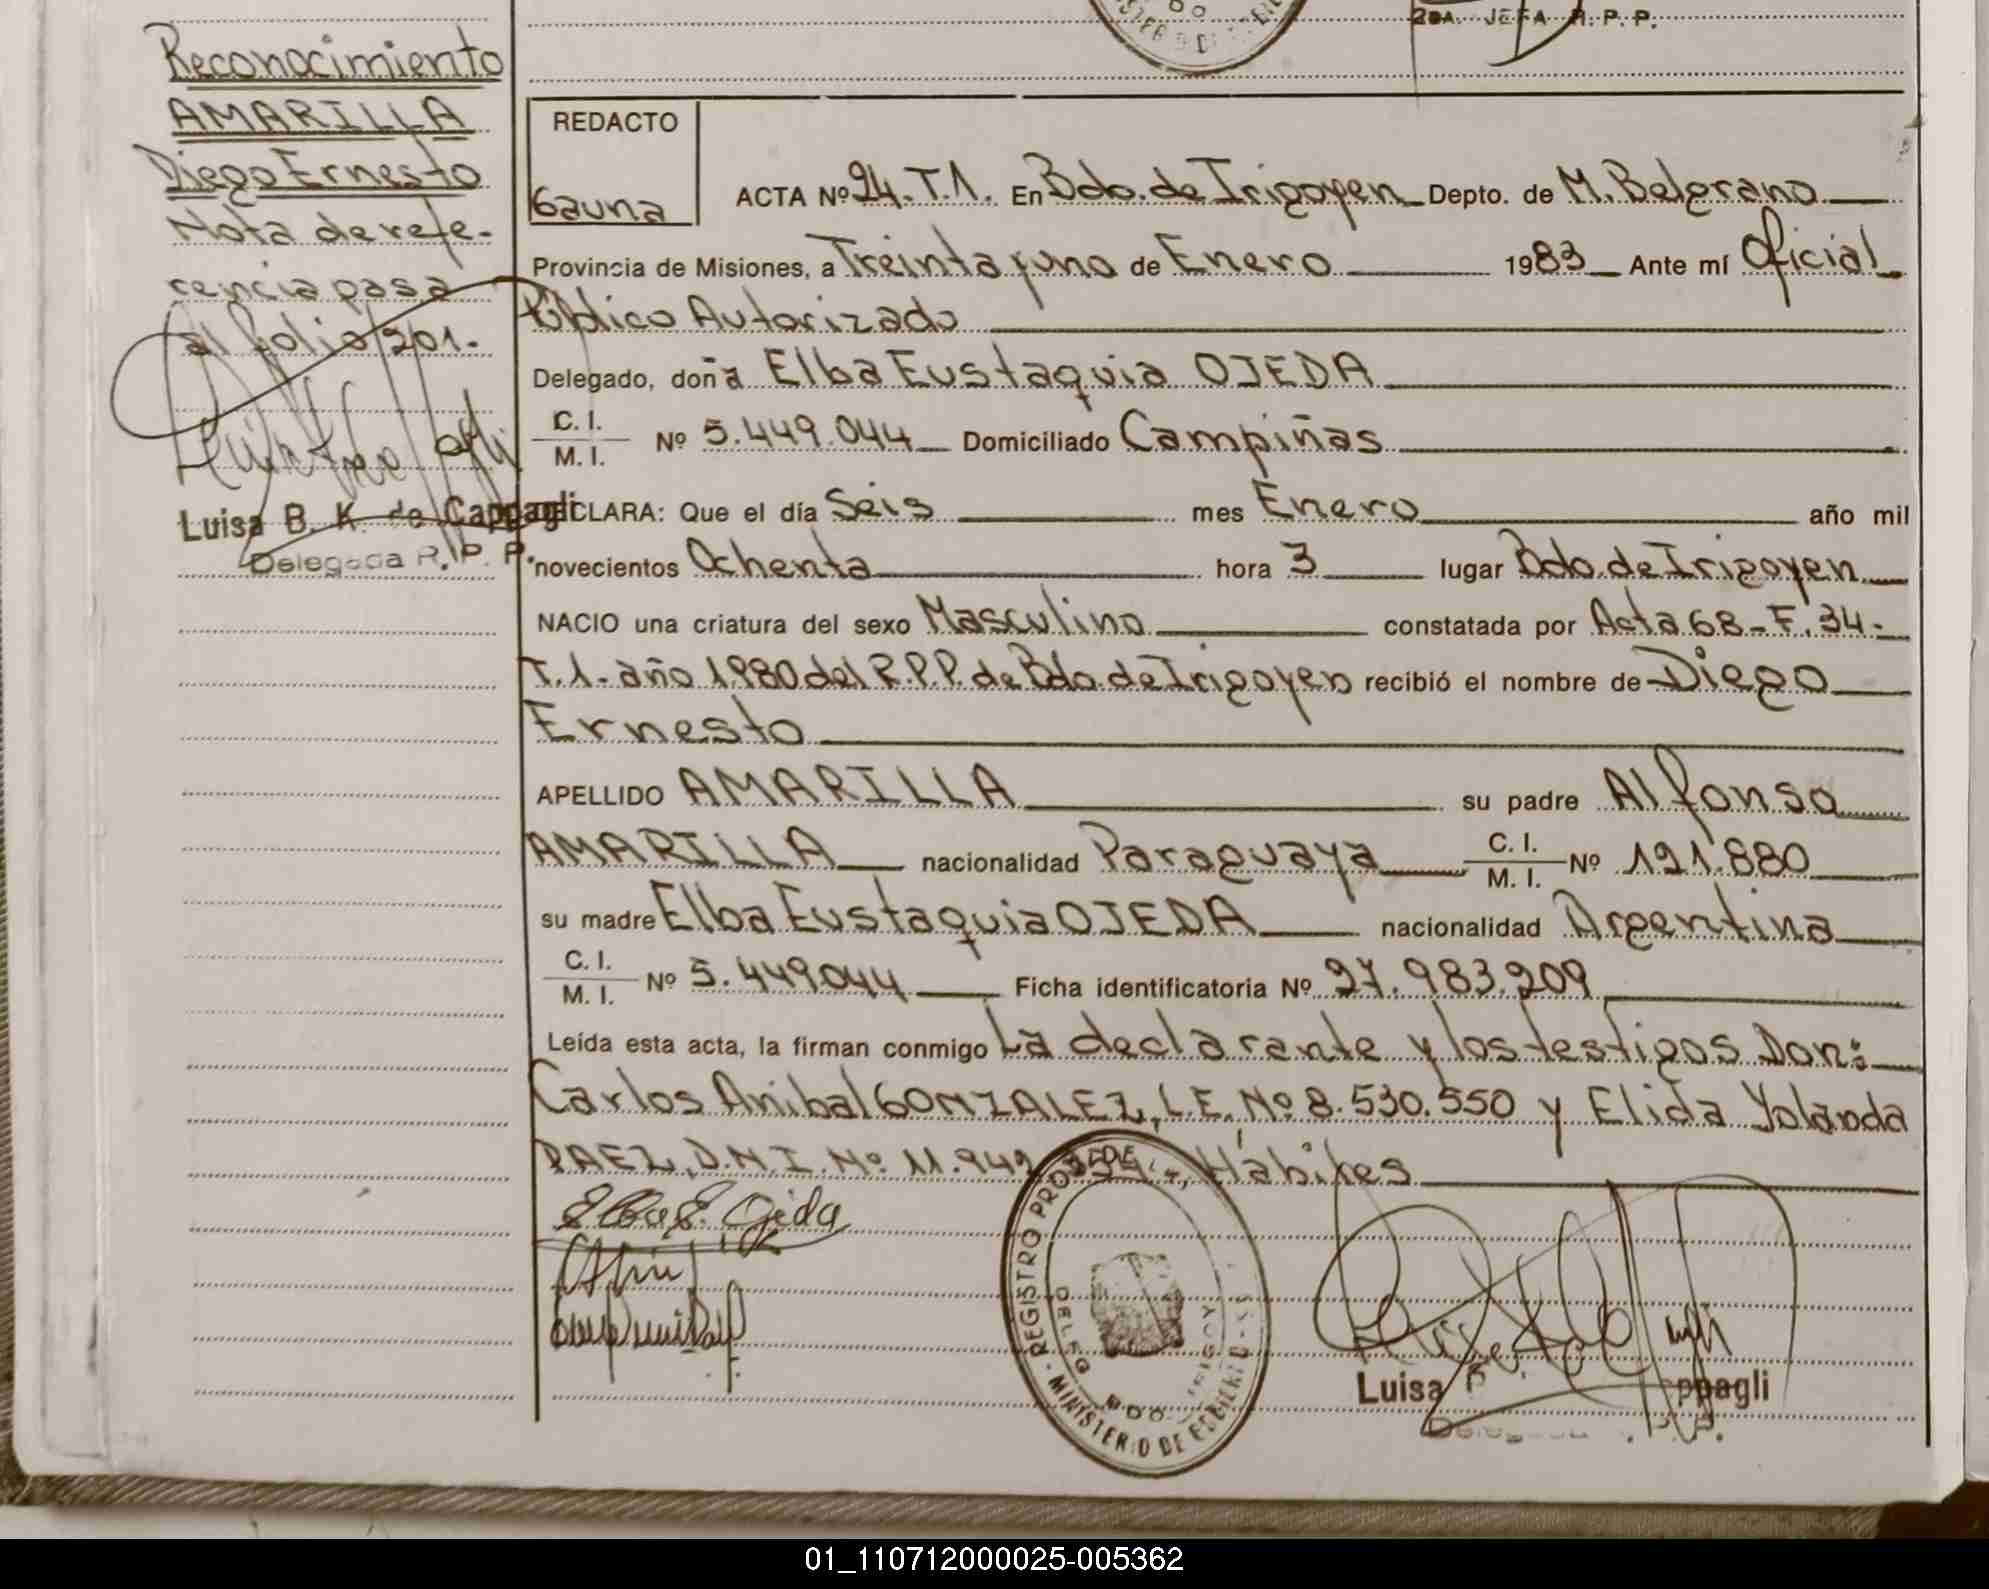 2DA. JEFA R. P. P.
Reconocimiento
AMARILLA
Diego Ernesto
Nota de refe-
rencia pasa
al folio 201.
Luisa B. K. de Cappagli
Delegada R. P. P.
REDACTO
Gauna
ACTA Nº 24. T.1. En Bdo. de Irigoyen Depto. de M. Belgrano
Provincia de Misiones, a Treinta y uno de Enero 1983 Ante mí Oficial
Público Autorizado
Delegado, doña Elba Eustaquia OJEDA
C. I.
M. I. Nº 5.449.044 Domiciliado Campiñas
DECLARA: Que el día Seis mes Enero año mil
novecientos Ochenta hora 3 lugar Bdo. de Irigoyen
NACIO una criatura del sexo Masculino constatada por Acta 68-F. 34-
T.1- año 1980 del R.P.P. de Bdo. de Irigoyen recibió el nombre de Diego
Ernesto
APELLIDO AMARILLA su padre Alfonso
AMARILLA nacionalidad Paraguaya C. I. M. I. Nº 121.880
su madre Elba Eustaquia OJEDA nacionalidad Argentina
C. I.
M. I. Nº 5.449044 Ficha identificatoria Nº 27.983.209
Leída esta acta, la firman conmigo La declarante y los testigos Don:
Carlos Anibal GONZALEZ, L.E. Nº 8.530.550 y Elida Yolanda
PAEZ, D.N.I. Nº 11.949 Hábiles
Elba E. Ojeda
REGISTRO PRO DE
MINISTERIO DE
Luisa ppagli
01_110712000025-005362